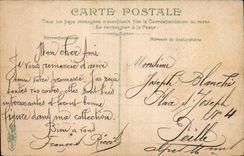 CARTE POSTALE
Tous les pays étrangers n'acceptent pas la Correspondance au recto
Se renseigner à la Poste
Correspondance
Adresse du destinataire
Mon cher ami
Je vous remercie d'avoir
pensé votre promesse. J'ai reçu
toutes vos cartes elles sont très
intéressantes et feront bonne
figure dans ma collection.
Bien à toi
Monsieur
Joseph Blanche
Place St Joseph
N° 4